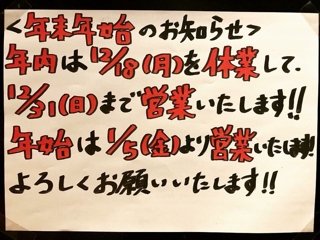 <年末年始のお知らせ>
年内は12/18(月)を休業して、
12/31(日)まで営業いたします!!
年始は1/5(金)より営業いたします!!
よろしくお願いいたします!!